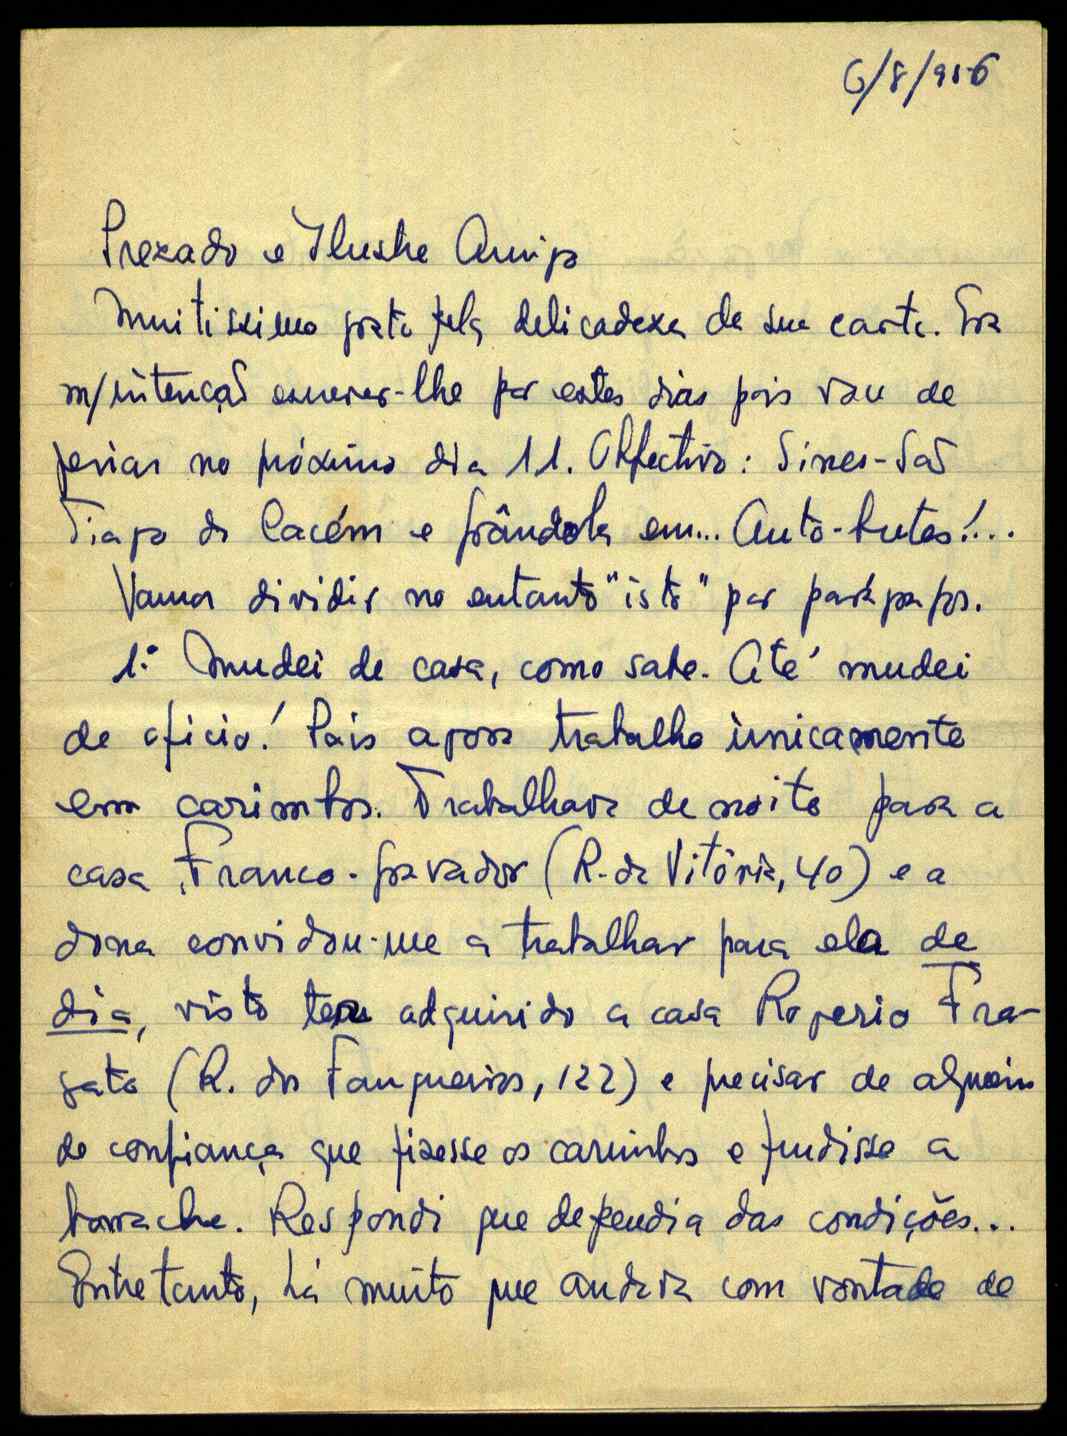 6/8/956
Prezado e Ilustre Amigo
Muitissimo grato pela delicadeza da sua carta. Era
m/intenção escrever-lhe por estes dias pois vou de
ferias no próximo dia 11. Objectivo: Sines-São
Tiago do Cacém e Grândola em... Auto-butes!...
Vamos dividir no entanto "isto" por parágrafos.
1.º Mudei de casa, como sabe. Até mudei
de oficio! Pois agora trabalho ùnicamente
em carimbos. Trabalhava de noite para a
casa Franco-gravador (R. da Vitória, 40) e a
dona convidou-me a trabalhar para ela de
dia, visto ter adquirido a casa Rogerio Fra-
gata (R. dos Fanqueiros, 122) e precisar de alguem
de confiança que fizesse os carimbos e fundisse a
borracha. Respondi que dependia das condições...
Entretanto, há muito que andava com vontade de